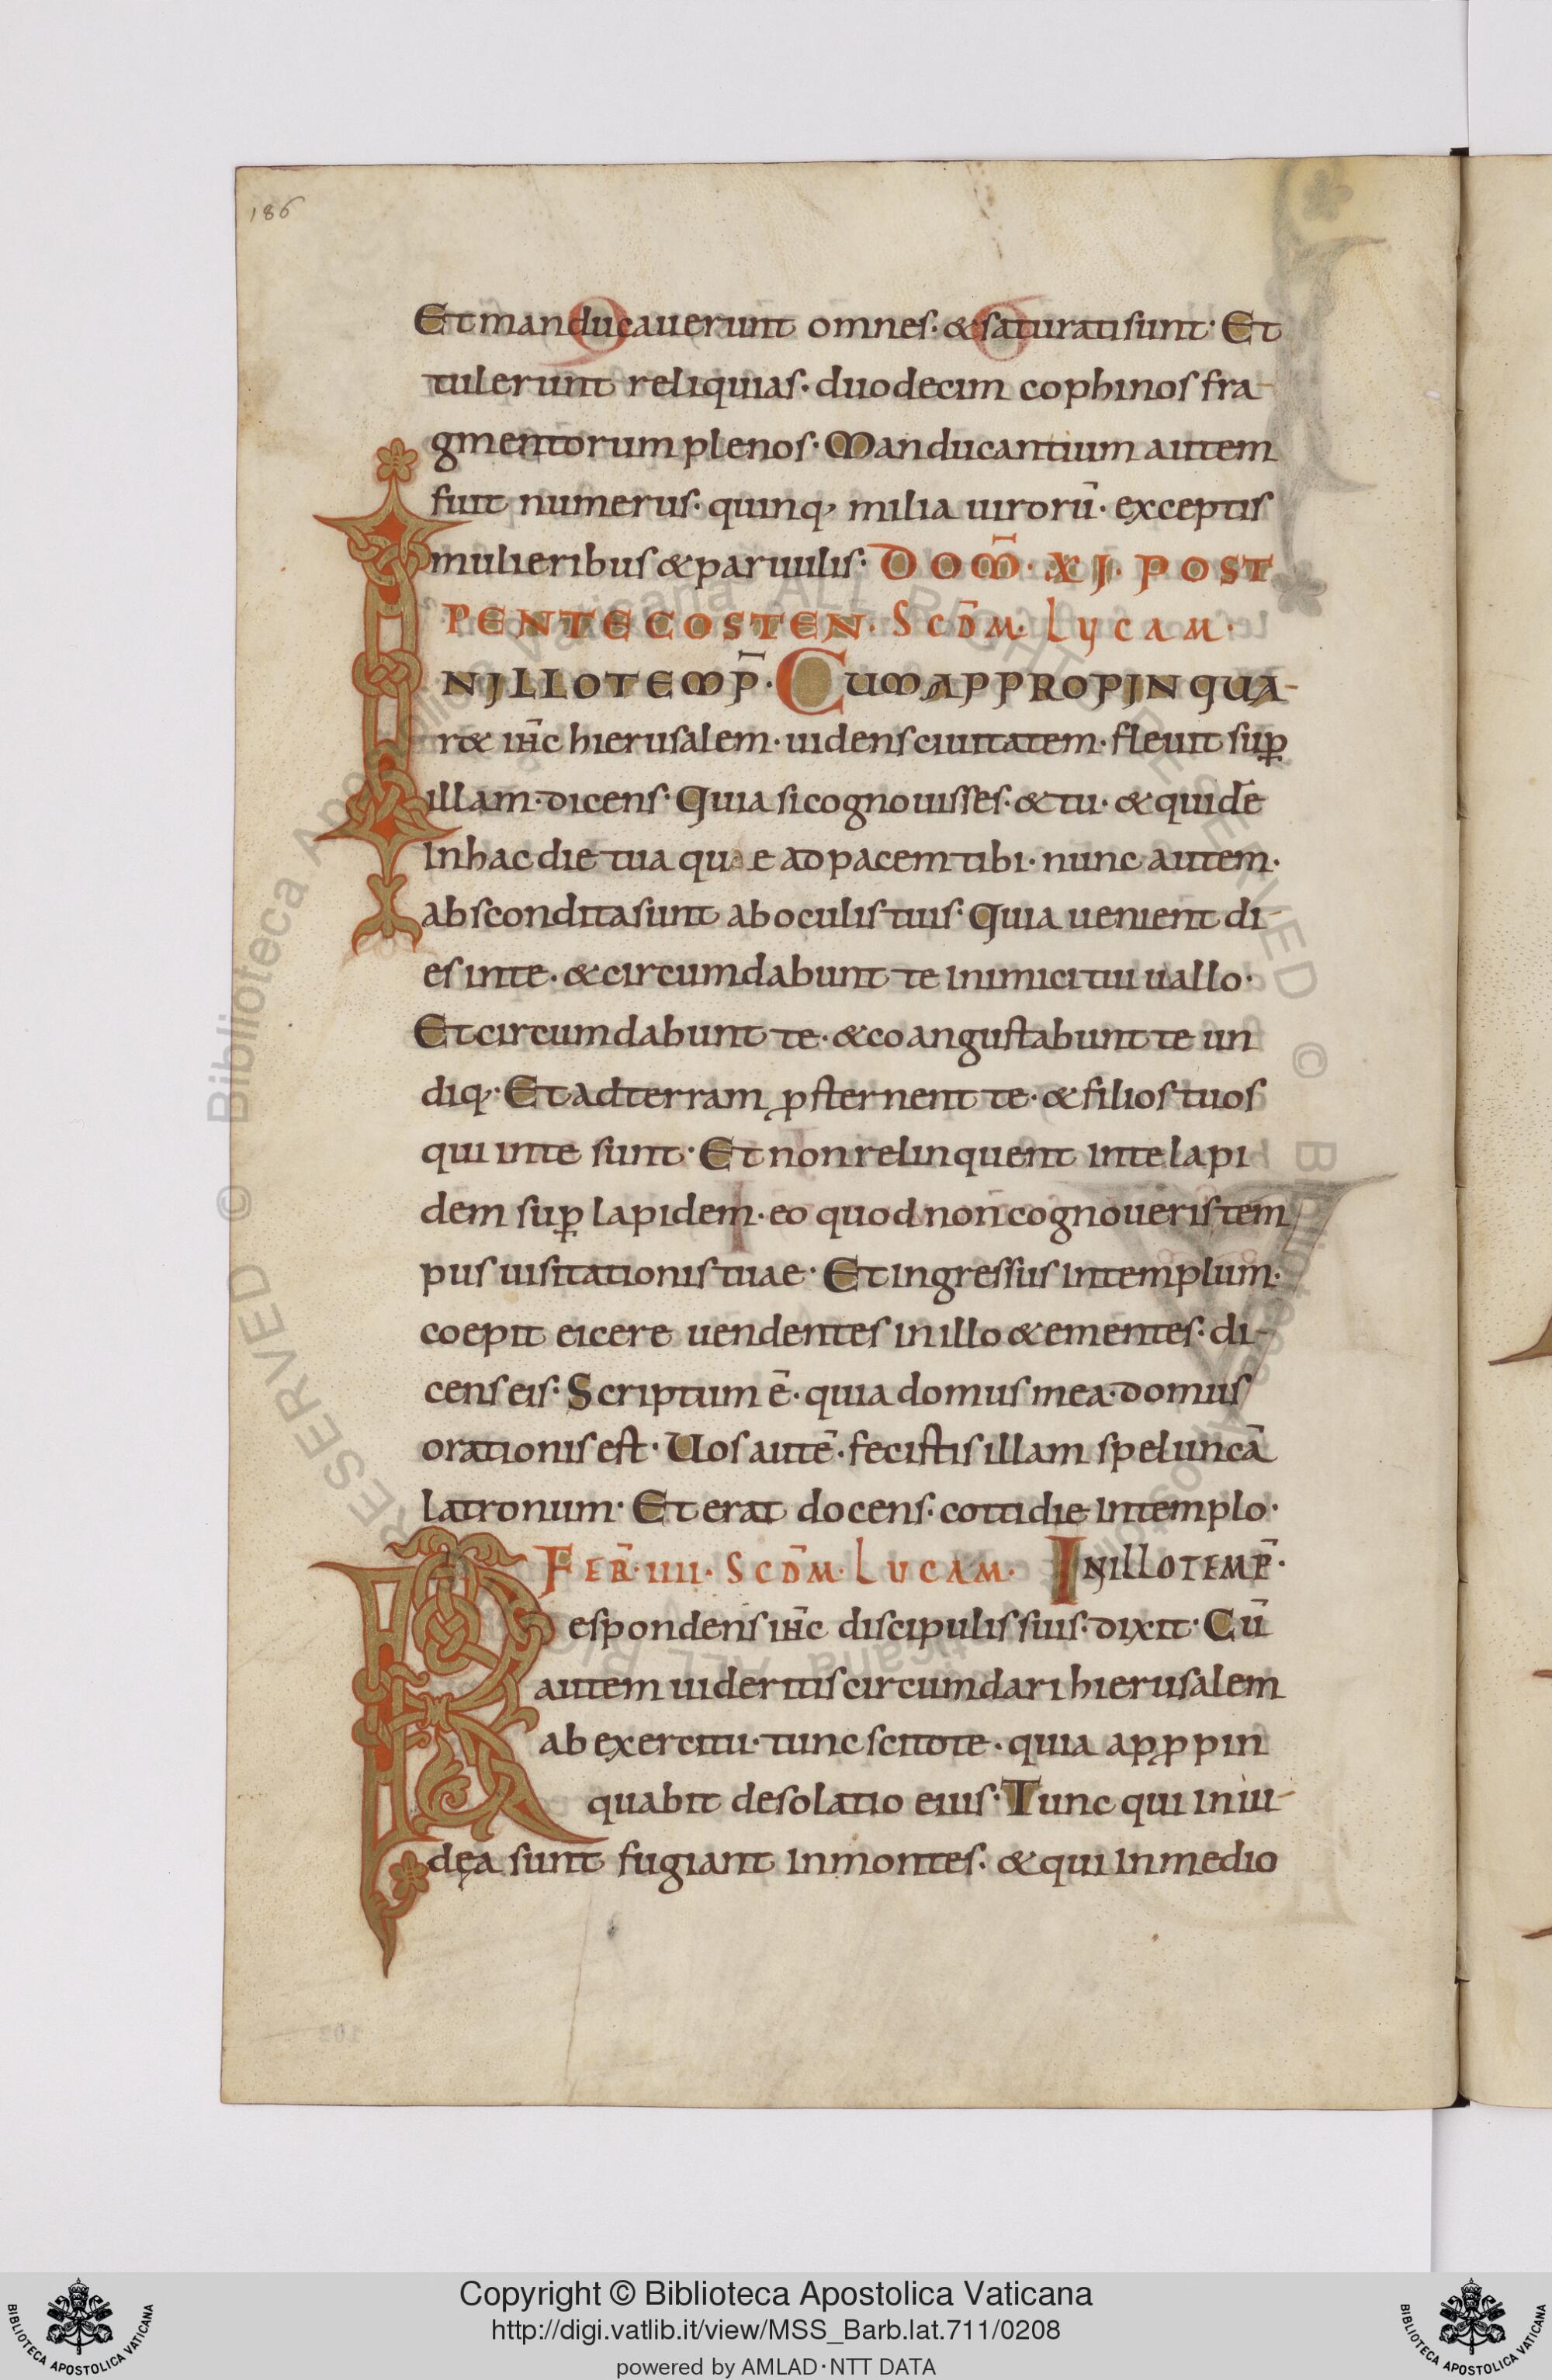 186
Et manducauerunt omnes· & saturati sunt· Et
tulerunt reliquias· duodecim cophinos fra-
gmentorum plenos· Manducantium autem
fuit numerus· quinq, milia uirorū· exceptis
mulieribus & paruulis· DOM̄· XI· POST
PENTECOSTEN· SCD̄M· LYCAM·
IN ILLO TEMP̄· CUM APPROPINQUA-
r& ih̄c hierusalem· uidens ciuitatem· fleuit suꝑ
illam· dicens· Quia si cognouisses· & tu· & quidē
in hac die tua quae ad pacem tibi· nunc autem·
abscondita sunt ab oculis tuis· Quia uenient di-
es in te· & circumdabunt te inimici tui uallo·
Et circumdabunt te· & coangustabunt te un
diq,· Et ad terram ꝓsternent te· & filios tuos
qui in te sunt· Et non relinquent in te lapi
dem suꝑ lapidem· eo quod non cognoueris tem
pus uisitationis tuae· Et ingressus in templum·
coepit eicere uendentes in illo & ementes· di-
cens eis· Scriptum ē· quia domus mea· domus
orationis est· Uos autē· fecistis illam speluncā
latronum· Et erat docens· cottidie in templo·
FER̄· IIII· SCD̄M· LUCAM· IN ILLO TEMP̄·
Respondens ih̄c discipulis suis· dixit· Cū
autem uideritis circumdari hierusalem
ab exercitu· tunc scitote· quia apꝓpin
quabit desolatio eius· Tunc qui in iu-
dęa sunt fugiant in montes· & qui in medio
© Biblioteca Apostolica Vaticana ALL RIGHTS RESERVED © Biblioteca Apostolica Vaticana ALL RIGHTS RESERVED
Copyright © Biblioteca Apostolica Vaticana
http://digi.vatlib.it/view/MSS_Barb.lat.711/0208
powered by AMLAD·NTT DATA
BIBLIOTECA APOSTOLICA VATICANA
BIBLIOTECA APOSTOLICA VATICANA